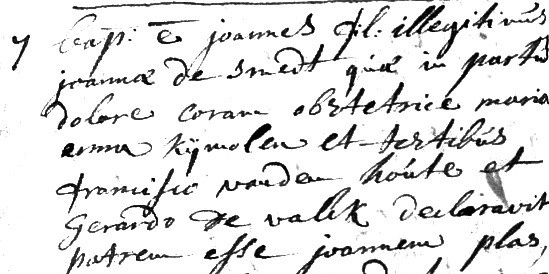 7 bap: ē joannes fil: illegitimús
joannæ de smedt quæ in partús
dolore coram obstetrice maria
anna Kÿmolen et testibús
francisco vanden hoúte et
Gerardo de valck declaravit
patrem esse joannem plas,